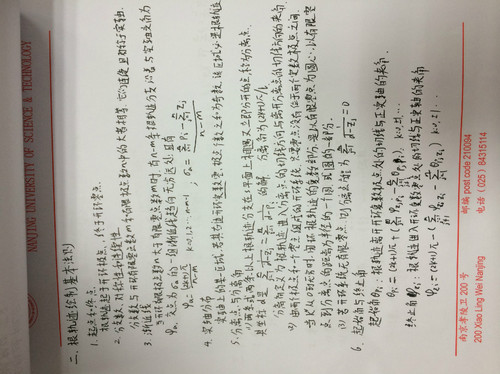 NANJING UNIVERSITY OF SCIENCE & TECHNOLOGY
二、根轨迹绘制基本法则
1. 起点和终点
根轨迹起于开环极点、终于开环零点.
2. 分支数、对称性和连续性
分支数与开环有限零点数m和有限极点数n中的大者相等, 它们连续且对称于实轴.
3. 渐近线
当开环有限极点数n大于有限零点数m时, 有n-m条根轨迹分支沿着与实轴夹角为
φa, 交点为σa的一组渐近线趋向无穷远处, 且有
φa = (2k+1)π / n-m   k=0,1,2,…,n-m-1 ; σa = Σ Pi - Σ Zj / n-m
4. 实轴分布
实轴上的某一区域, 若其右边开环实数零、极点个数之和为奇数, 该区域必是根轨迹.
5. 分离点与分离角
(1) 两条或两条以上根轨迹分支在S平面上相遇又立即分开的点称为分离点.
其坐标d是 Σ 1/d-Zj = Σ 1/d-Pi 的解. 分离角为(2k+1)π/l
分离角定义为根轨迹进入分离点的切线方向与离开分离点的切线方向的夹角.
(2) 由两个极点和一个零点组成的开环系统, 只要零点没有位于两个实数极点之间.
当K从0到无穷时, 闭环根轨迹的复数部分是以有限零点为圆心, 以有限零
点到分离点的距离为半径的一个圆, 或圆的一部分.
(3) 若开环系统无有限零点, 则分离点方 为 Σ 1/d-Zj = 0
6. 起始角与终止角
起始角θpi : 根轨迹离开开环复数极点处的切线与正实轴的夹角.
θpi = (2k+1)π + (Σ φzjpi - Σ θpjpi), k=0,±1,…
终止角φzi : 根轨迹进入开环复数零点处的切线与正实轴的夹角
φzi = (2k+1)π - (Σ φzjzi - Σ θpjzi) k=0,±1…
南京孝陵卫 200 号 邮编 post code 210094
200 Xiao Ling Wei Nanjing 电话 (025) 84315114